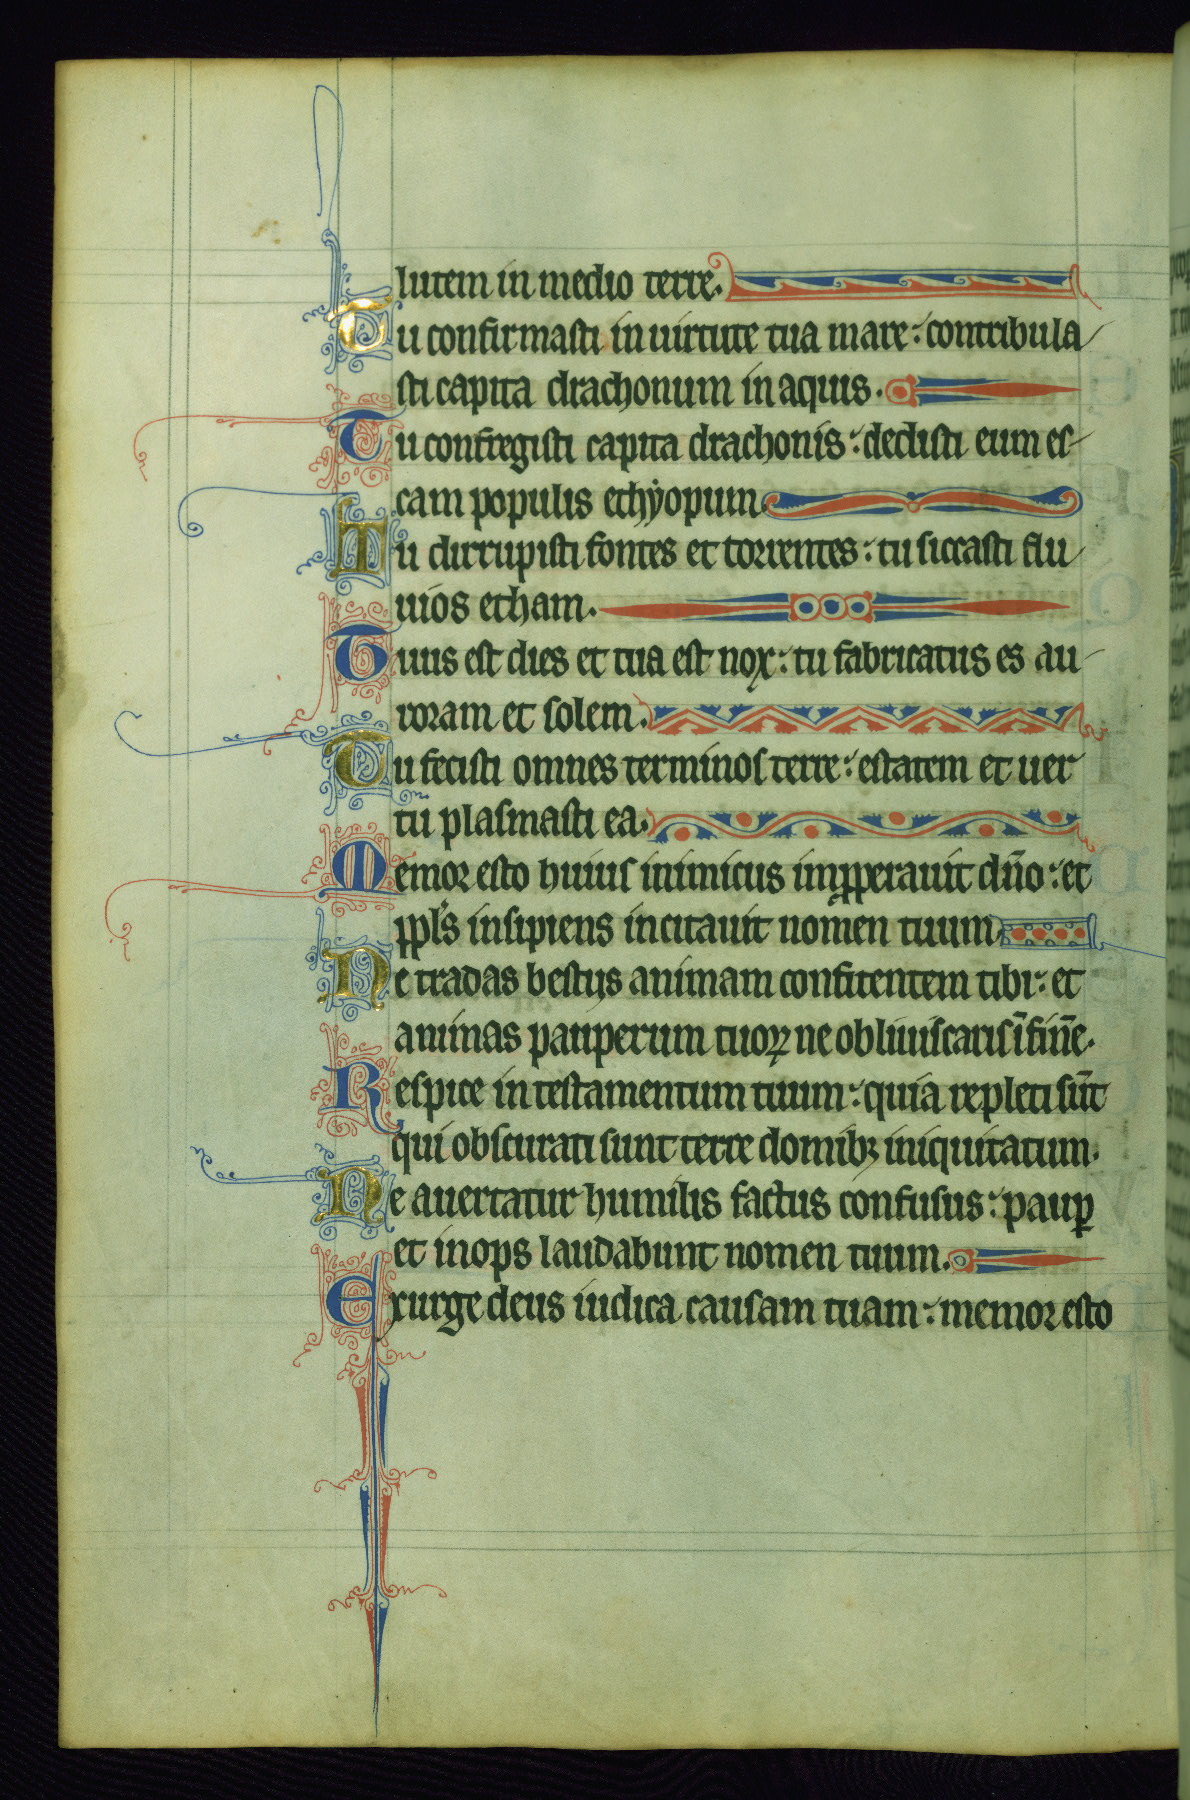 lutem in medio terre.
Tu confirmasti in uirtute tua mare: contribula
sti capita drachonum in aquis.
Tu confregisti capita drachonis: dedisti eum es
cam populis ethyopum
Tu dirrupisti fontes et torrentes: tu siccasti flu
uios etham.
Tuus est dies et tua est nox: tu fabricatus es au
roram et solem.
Tu fecisti omnes terminos terre: estatem et uer
tu plasmasti ea.
Memor esto huius inimicus imꝓperauit dn̄o: et
ppl's insipiens incitauit nomen tuum
Ne tradas bestijs animam confitentem tibi: et
animas pauperum tuoꝝ ne obliuiscaris ī fin̄e.
Respice in testamentum tuum: quia repleti sūt
qui obscurati sunt terre domibꝫ iniquitatum.
Ne auertatur humilis factus confusus: pauꝑ
et inops laudabunt nomen tuum.
Exurge deus iudica causam tuam: memor esto